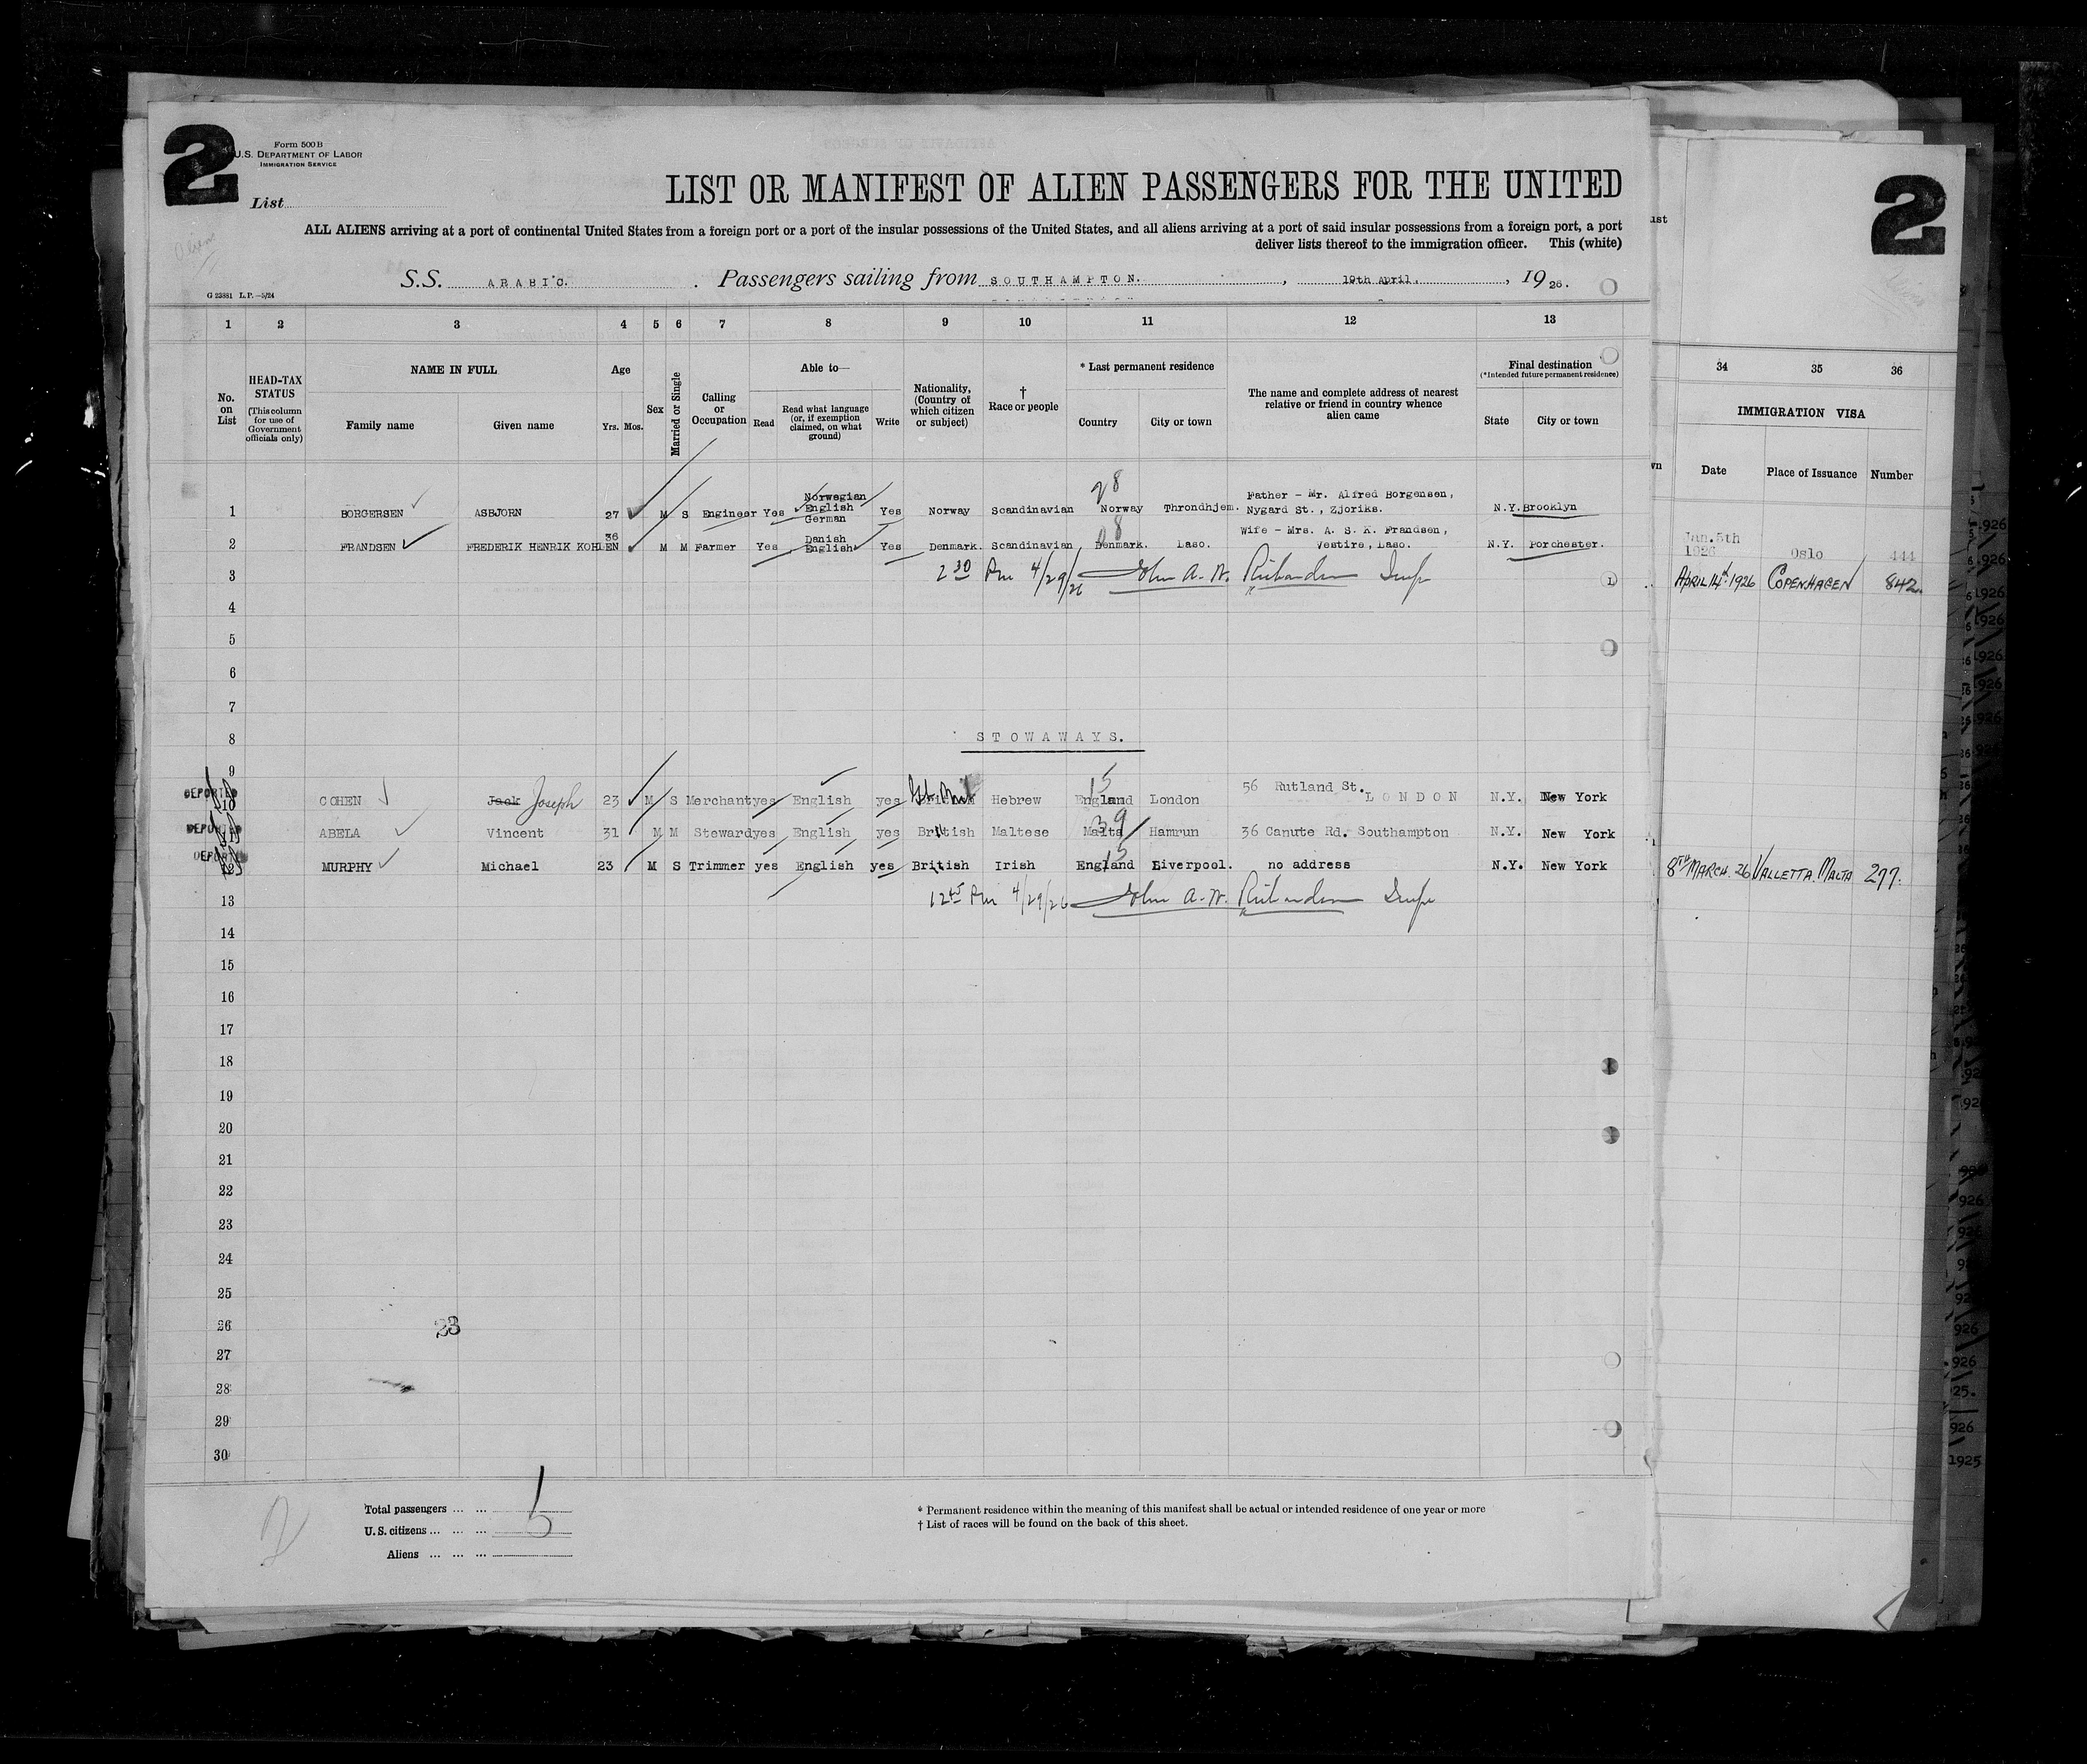 2
Form 500B
U.S. DEPARTMENT OF LABOR
IMMIGRATION SERVICE
List
LIST OR MANIFEST OF ALIEN PASSENGERS FOR THE UNITED
ALL ALIENS arriving at a port of continental United States from a foreign port or a port of the insular possessions of the United States, and all aliens arriving at a port of said insular possessions from a foreign port, a port
deliver lists thereof to the immigration officer. This (white)
S.S. ARABIC. Passengers sailing from SOUTHAMPTON. , 19th April, , 1926.
G 23881 L.P.—5/24
1 2 3 4 5 6 7 8 9 10 11 12 13
No. on List
HEAD-TAX STATUS (This column for use of Government officials only)
NAME IN FULL
Family name Given name
Age Yrs. Mos.
Sex
Married or Single
Calling or Occupation
Able to—
Read Read what language (or, if exemption claimed, on what ground) Write
Nationality, (Country of which citizen or subject)
† Race or people
* Last permanent residence
Country City or town
The name and complete address of nearest relative or friend in country whence alien came
Final destination
(*Intended future permanent residence)
State City or town
1 BORGERSEN ASBJORN 27 M S Engineer Yes Norwegian English German Yes Norway Scandinavian Norway Throndhjem. Father - Mr. Alfred Borgensen, Nygard St., Zjoriks. N.Y. Brooklyn
2 FRANDSEN FREDERIK HENRIK KOHLEN 36 M M Farmer Yes Danish English Yes Denmark. Scandinavian Denmark. Laso. Wife - Mrs. A. S. K. Frandsen, Vestire, Laso. N.Y. Porchester.
3 2 30 Pm 4/29/26 John A. W. Richardson Insp
4
5
6
7
8 STOWAWAYS.
9
DEPORTED 10 COHEN Jack Joseph 23 M S Merchant yes English yes British Hebrew England 15 London 56 Rutland St. LONDON N.Y. New York
DEPORTED 11 ABELA Vincent 31 M M Steward yes English yes British Maltese Malta 39 Hamrun 36 Canute Rd. Southampton N.Y. New York
DEPORTED 12 MURPHY Michael 23 M S Trimmer yes English yes British Irish England 15 Liverpool. no address N.Y. New York
13 12 45 Pm 4/29/26 John A. W. Richardson Insp
14
15
16
17
18
19
20
21
22
23
24
25
26 23
27
28
29
30
Total passengers ... ... 5
U.S. citizens ... ... ...
Aliens ... ... ...
2
* Permanent residence within the meaning of this manifest shall be actual or intended residence of one year or more
† List of races will be found on the back of this sheet.
2
34 35 36
IMMIGRATION VISA
Date Place of Issuance Number
Jan. 5th 1926 Oslo 444
APRIL 14th 1926 COPENHAGEN 842.
8TH MARCH. 26 VALLETTA. MALTA 277.